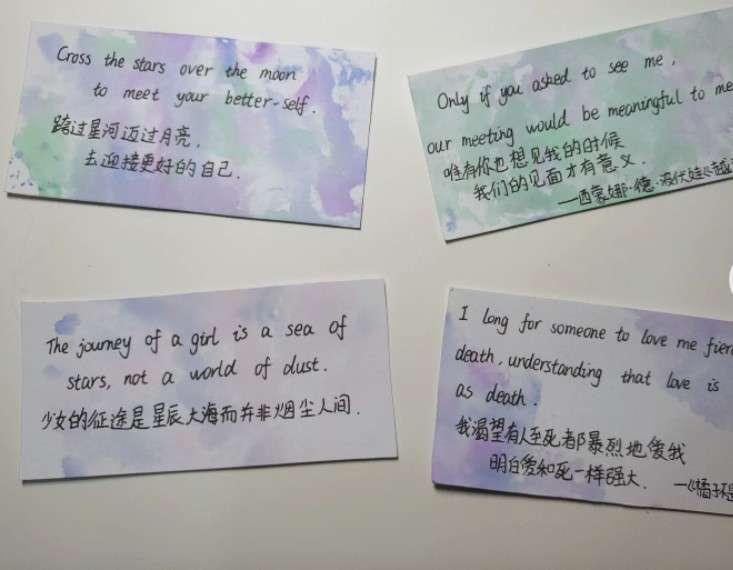 Cross the stars over the moon
to meet your better-self.
跨过星河迈过月亮,
去迎接更好的自己.
Only if you asked to see me,
our meeting would be meaningful to me
唯有你也想见我的时候
我们的见面才有意义.
—西蒙娜·德·波伏娃《越
The journey of a girl is a sea of
stars, not a world of dust.
少女的征途是星辰大海而并非烟尘人间.
I long for someone to love me
death, understanding that love is
as death.
我渴望有人至死都暴烈地爱我
明白爱和死一样强大.
—《橘子不是